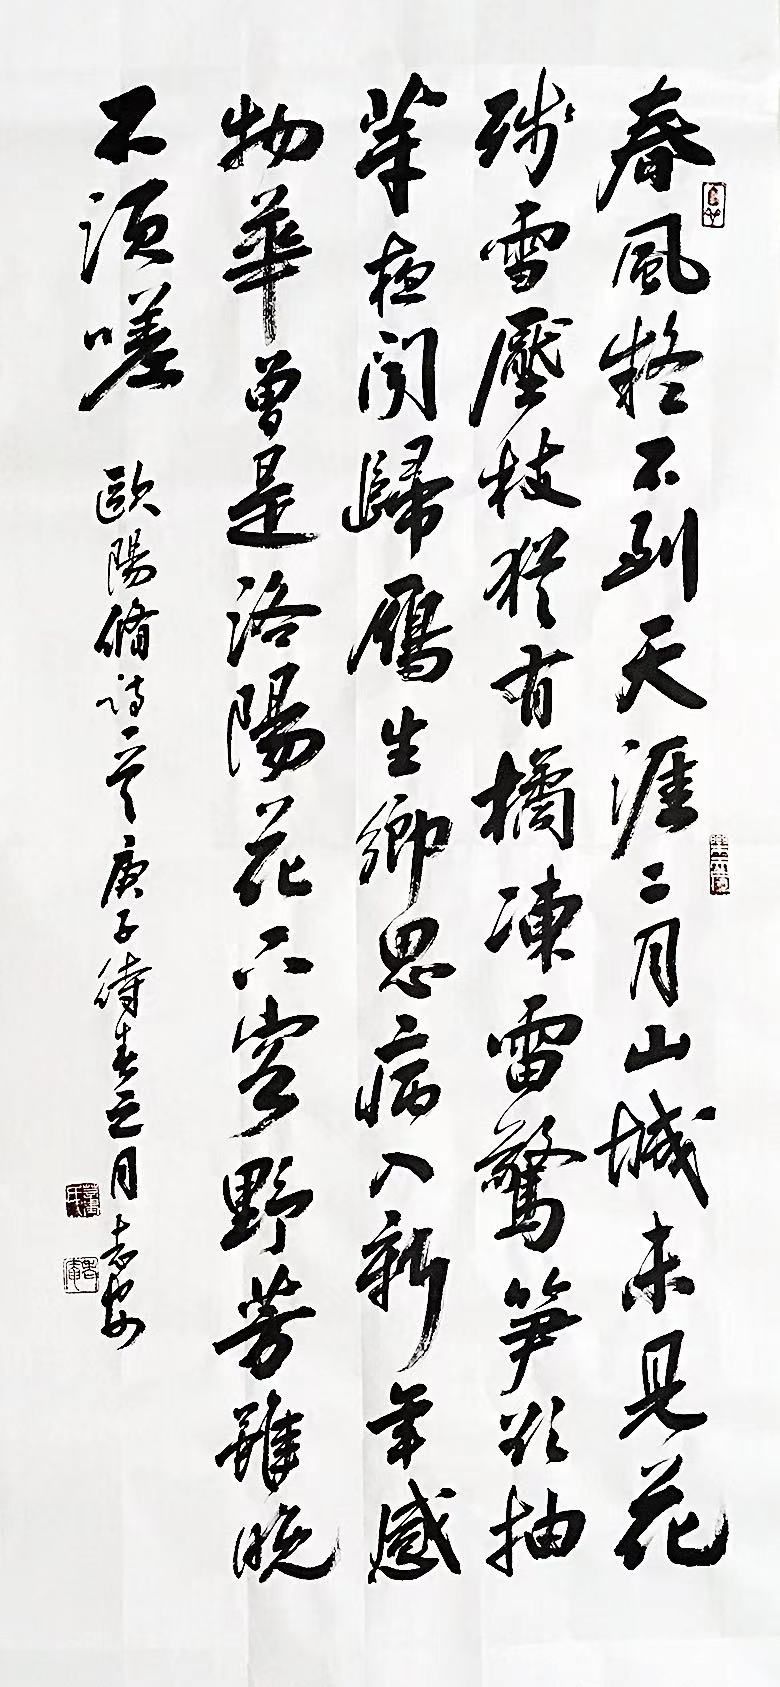 春風疑不到天涯二月山城未見花
殘雪壓枝猶有橘凍雷驚筍欲抽
芽夜聞歸雁生鄉思病入新年感
物華曾是洛陽花下客野芳雖晚
不須嗟
歐陽脩詩一首庚子待春三月志安